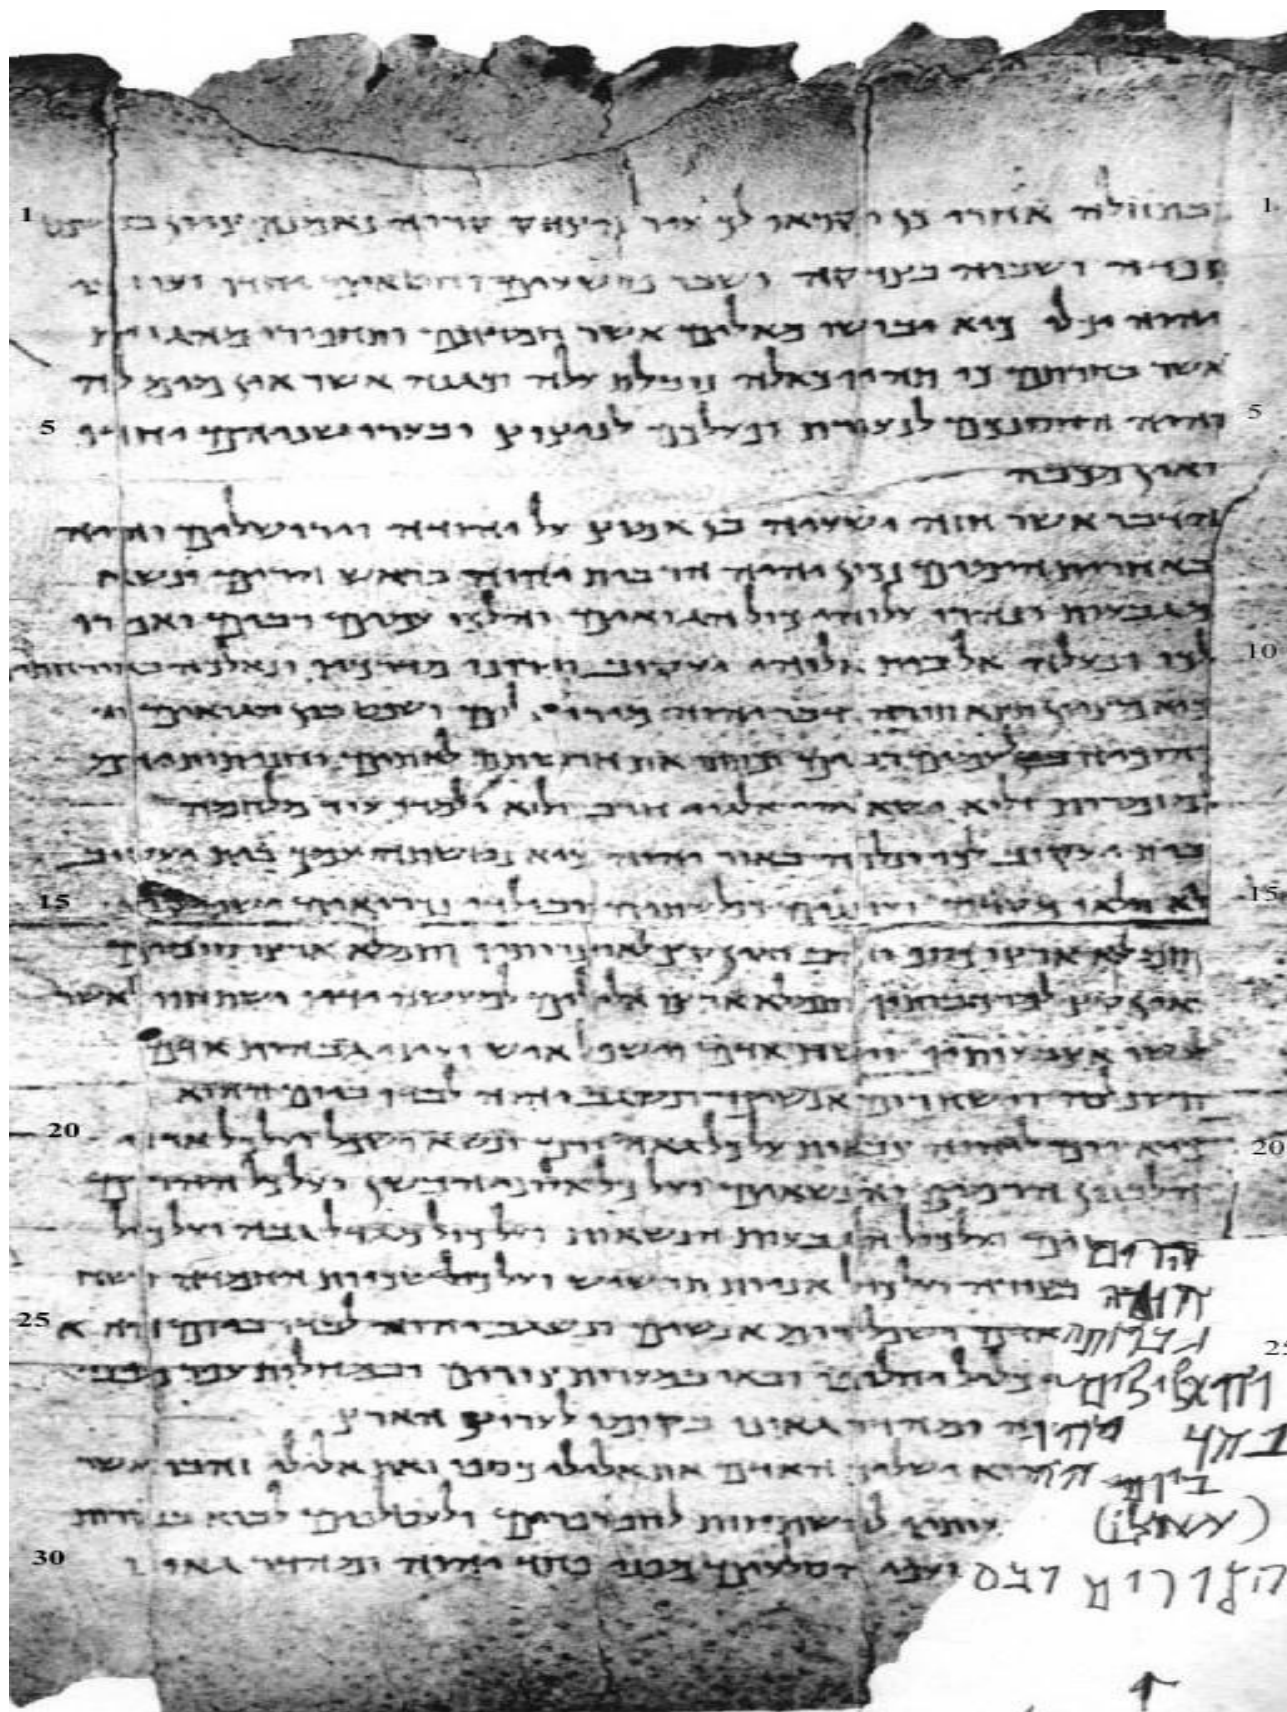 כבתחלה אחרי כן יקראו לך עיר הצדק קריה נאמנה ציון במשפט
ושביה בצדקה ושבר פושעים וחטאים יחדו ועוזבי
יהוה יכלו כיא יבושו מאלים אשר חמדתם ותחפרו מהגנות
אשר בחרתם כי תהיו כאלה נובלת עלה וכגנה אשר אין מים לה
והיה החסנכם לנעורת ופעלכם לניצוץ ובערו שניהם יחדיו
ואין מכבה
הדבר אשר חזה ישעיה בן אמוץ על יהודה וירושלים והיה
באחרית הימים נכון יהיה הר בית יהוה בראש הרים ונשא
מגבעות ונהרו עלוהי כול הגואים והלכו עמים רבים ואמרו
לכו ונעלה אל בית אלוהי יעקוב וירונו מדרכיו ונאלכה באורחתיו
כיא מציון תצא תורה ודבר יהוה מירושלים ושפט בין הגואים
והוכיח לעמים רבים וכתתו את חרבותם לאתים וחניתותיהם
למזמרות ולוא ישא גוי אל גוי חרב ולוא ילמדו עוד מלחמה
בית יעקוב לכו ונלכה באור יהוה כיא נטשתה עמך בית יעקוב
מלאו מקדם ועוננים ובילדי נכריאים
ותמלא ארצו כסף וזהב ואין קץ לאוצרותיו ותמלא ארצו סוסים
ואין קץ למרכבותיו ותמלא ארצו אלילים למעשה ידיו ישתחוו לאשר
עשו אצבעותיו וישח אדם וישפל איש ועיני גבהות אדם
תשפלנה וישח רום אנשים ונשגב יהוה לבדו ביום ההוא
כיא יום ליהוה צבאות על כל גאה ורם ונשא ושפל ועל כל ארזי
הלבנון הרמים והנשאים ועל כל אלוני הבשן ועל כל ההרים
הרמים ועל כול הגבעות הנשאות ועל כול מגדל גבה ועל כול
חומה בצורה ועל כול אניות תרשיש ועל כול שכיות החמדה ושח
גבהות אדם ושפל רום אנשים ונשגב יהוה לבדו ביום ההוא
והאלילים כליל יחלופו ובאו במערות צורים ובמחלות עפר מפני
פחד יהוה ומהדר גאונו בקומו לערוץ הארץ
ביום ההוא ישליך האדם את אלילי כספו ואת אלילי זהבו אשר
אצבעותיו להשתחות לחפרפרים ולעטלפים לבוא בנקרות
הצורים ובסעיפי הסלעים מפני פחד יהוה ומהדר גאונו